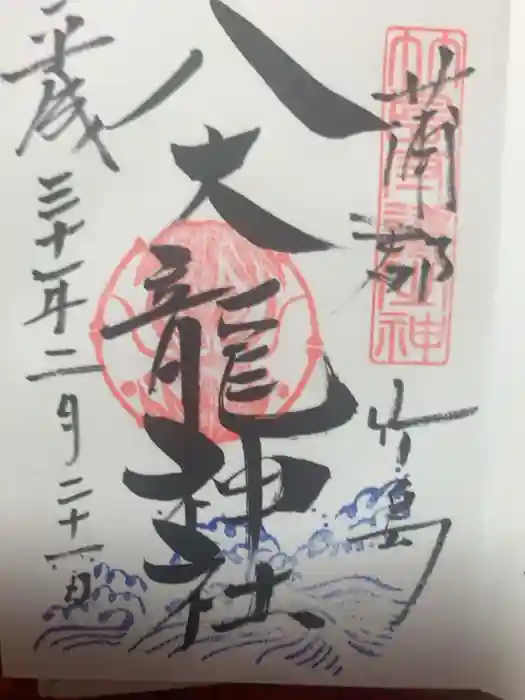 蒲郡
竹島
八大龍神社
平成三十一年二月二十一日